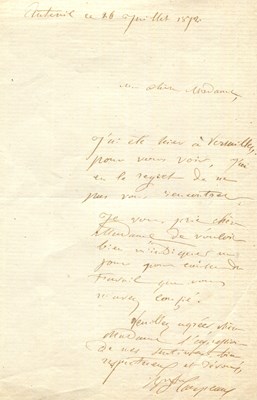 Auteuil ce 26 Juillet 1872
ma chère Madame,
J'ai été hier à Versailles
pour vous voir, j'ai
eu le regret de ne
pas vous rencontrer.
Je vous prie chère
Madame de vouloir
bien m'indiquer un
jour pour causer du
travail que vous
m'avez confié.
Veuillez agréer chère
Madame l'expression
de mes sentiments bien
respectueux et dévoués
Carpeaux